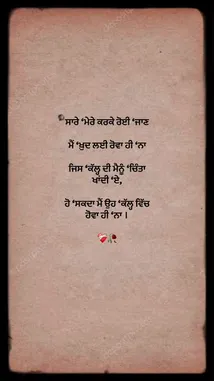 ਸਾਰੇ ‘ਮੇਰੇ ਕਰਕੇ ਰੋਈ ‘ਜਾਣ
ਮੈਂ ‘ਖੁਦ ਲਈ ਰੋਵਾ ਹੀ ‘ਨਾ
ਜਿਸ ‘ਕੱਲ੍ਹ ਦੀ ਮੈਨੂੰ ‘ਚਿੰਤਾ
ਖਾਂਦੀ ‘ਏ,
ਹੋ ‘ਸਕਦਾ ਮੈਂ ਉਹ ‘ਕੱਲ੍ਹ ਵਿੱਚ
ਹੋਵਾ ਹੀ ‘ਨਾ ।
❤️‍🩹🥀